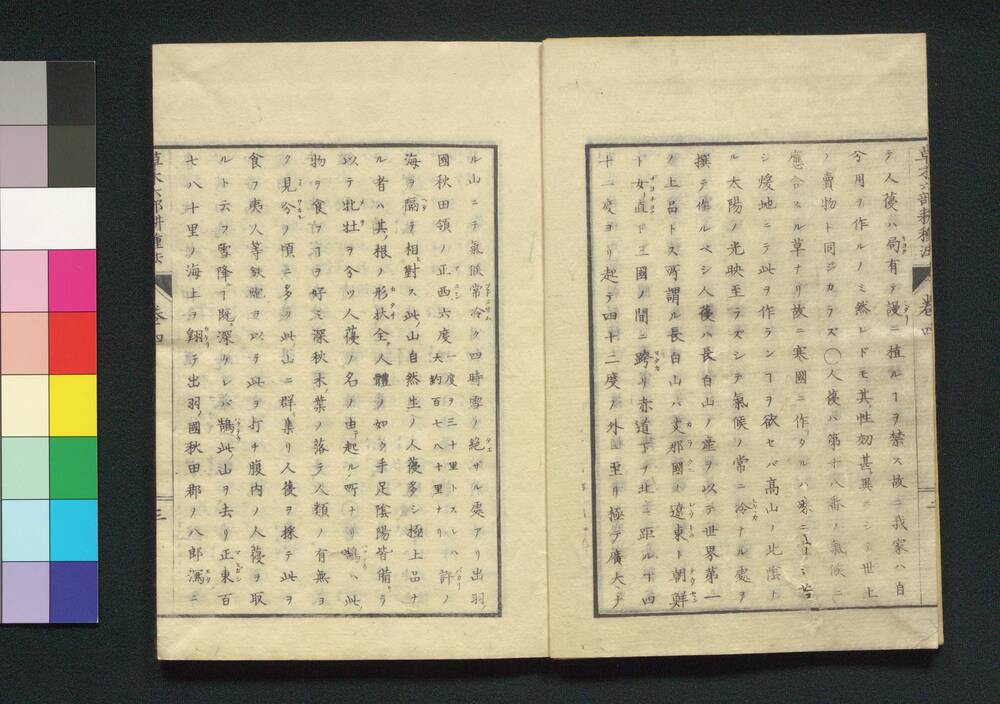 草木六部耕種法 卷四
テ人葠ハ局有テ謾ニ植ルヿヲ禁ス故ニ我家ハ自
分用ヲ作ルノミ然レドモ其性効甚異ニシテ世上
ノ賣物ト同ジカラズ〇人葠ハ第十八番ノ氣候ニ
應合スル草ナリ故ニ寒國ニ作リタルハ
シ煖地ニテ此ヲ作ランヿヲ欲セバ髙山ノ北陰ナ
ル太陽ノ光映至ラズシテ氣候ノ常ニ冷ナル處ヲ
撰テ作ルベシ人葠ハ長白山ノ産ヲ以テ世界第一
ノ上品トス所謂ル長白山ハ支那國ノ遼東ト朝鮮
ト女直ト三國ノ間ニ跨リ赤道下ヲ北ニ距ル丁四
十一度ヨリ起テ四十二度ノ外ニ至リ極テ廣大ナ
ル山ニテ氣候常冷ク四時雪ノ絶ザル處アリ出羽
國秋田領ノ正西六度一度ヲ三十里トスレハ大約百七八十里ナリ許ノ
海ヲ隔テ相對ス此ノ山自然生ノ人葠多シ極上品ナ
ル者ハ其ノ根ノ形状全人體ノ如ク手足陰陽皆備ラ
以テ牝牡ヲ分ツ人葠ノ名ノ由テ起ル所ナリ鶴ハ此
物ヲ食フヿヲ好ミ深秋木ノ葉ノ落テ人類ノ有無ヲ
ク見分ノ頃ニ多ク此山ニ群集リ人葠ヲ採テ此ヲ
食フ夷人等鉄炮ヲ以テ此ヲ打チ腹内ノ人葠ヲ取
ルト云フ雪降テ既ニ深ケレバ鶴此ノ山ヲ去リ正東百
七八十里ノ海上ヲ翔テ出羽ノ國秋田郡ノ八郎潟ニ
草木六部耕種法 卷四 三